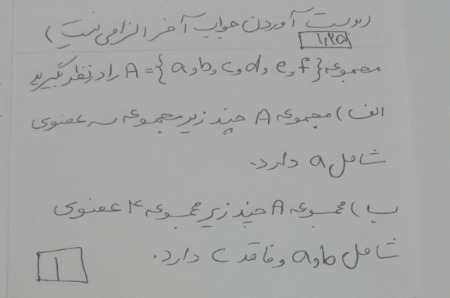 (بدست آوردن جواب آخر الزامی نیست)
۱,۲۵
مجموعه A = {a و b و c و d و e و f} را در نظر بگیرید
الف) مجموعه A چند زیر مجموعه سه عضوی
شامل a دارد.
ب) مجموعه A چند زیر مجموعه ۴ عضوی
شامل a و b و فاقد c دارد.
۱